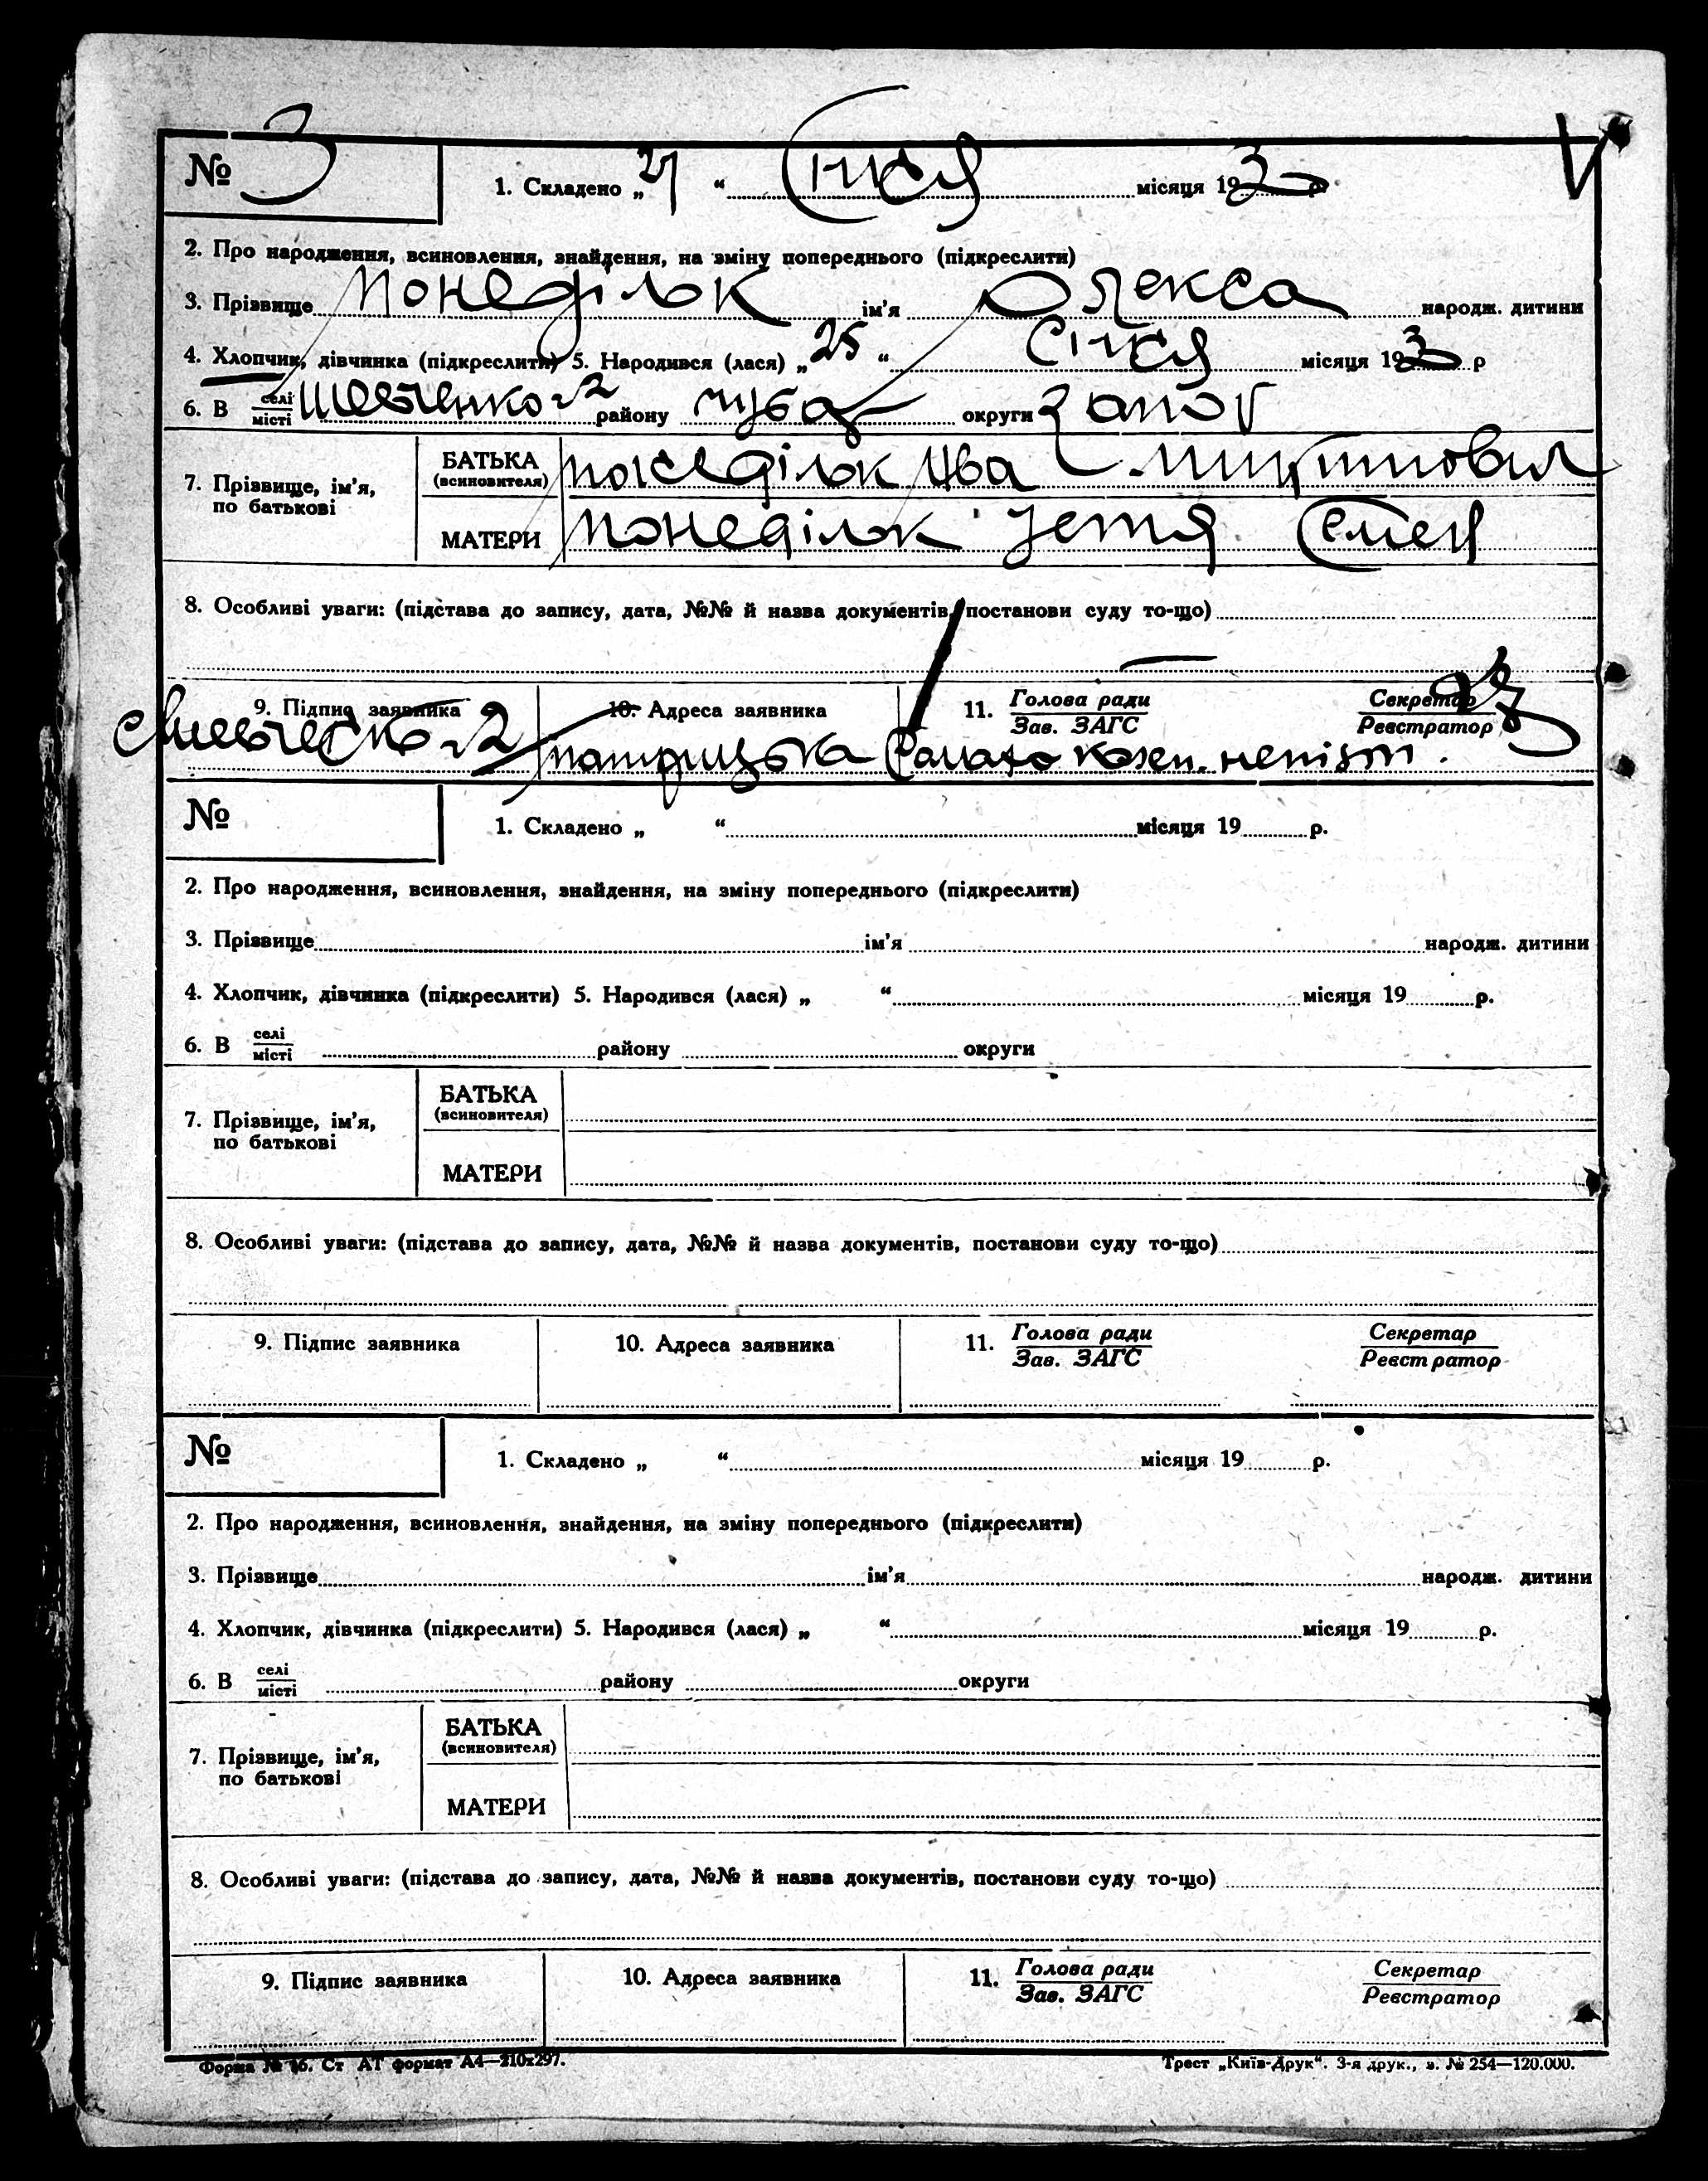 № 3 1. Складено „27“ Січня місяця 193 р.
2. Про народження, всиновлення, знайдення, на зміну попереднього (підкреслити)
3. Прізвище Понеділок ім’я Олекса народж. дитини
4. Хлопчик, дівчинка (підкреслити) 5. Народився (лася) „25“ Січня місяця 193 р
6. В селі/місті Шевченко №2 району округи Запор
7. Прізвище, ім’я, по батькові
БАТЬКА (всиновителя) Понеділок Ива Микитович
МАТЕРИ Понеділок Устя Семен
8. Особливі уваги: (підстава до запису, дата, №№ й назва документів, постанови суду то-що)
9. Підпис заявника 10. Адреса заявника 11. Голова ради/Зав. ЗАГС Секретар/Реєстратор
№ 1. Складено „ “ місяця 19 р.
2. Про народження, всиновлення, знайдення, на зміну попереднього (підкреслити)
3. Прізвище ім’я народж. дитини
4. Хлопчик, дівчинка (підкреслити) 5. Народився (лася) „ “ місяця 19 р.
6. В селі/місті району округи
7. Прізвище, ім’я, по батькові
БАТЬКА (всиновителя)
МАТЕРИ
8. Особливі уваги: (підстава до запису, дата, №№ й назва документів, постанови суду то-що)
9. Підпис заявника 10. Адреса заявника 11. Голова ради/Зав. ЗАГС Секретар/Реєстратор
№ 1. Складено „ “ місяця 19 р.
2. Про народження, всиновлення, знайдення, на зміну попереднього (підкреслити)
3. Прізвище ім’я народж. дитини
4. Хлопчик, дівчинка (підкреслити) 5. Народився (лася) „ “ місяця 19 р.
6. В селі/місті району округи
7. Прізвище, ім’я, по батькові
БАТЬКА (всиновителя)
МАТЕРИ
8. Особливі уваги: (підстава до запису, дата, №№ й назва документів, постанови суду то-що)
9. Підпис заявника 10. Адреса заявника 11. Голова ради/Зав. ЗАГС Секретар/Реєстратор
Форма № 16. Ст АТ формат А4—210х297. Трест „Київ-Друк“. 3-я друк., з. № 254—120.000.